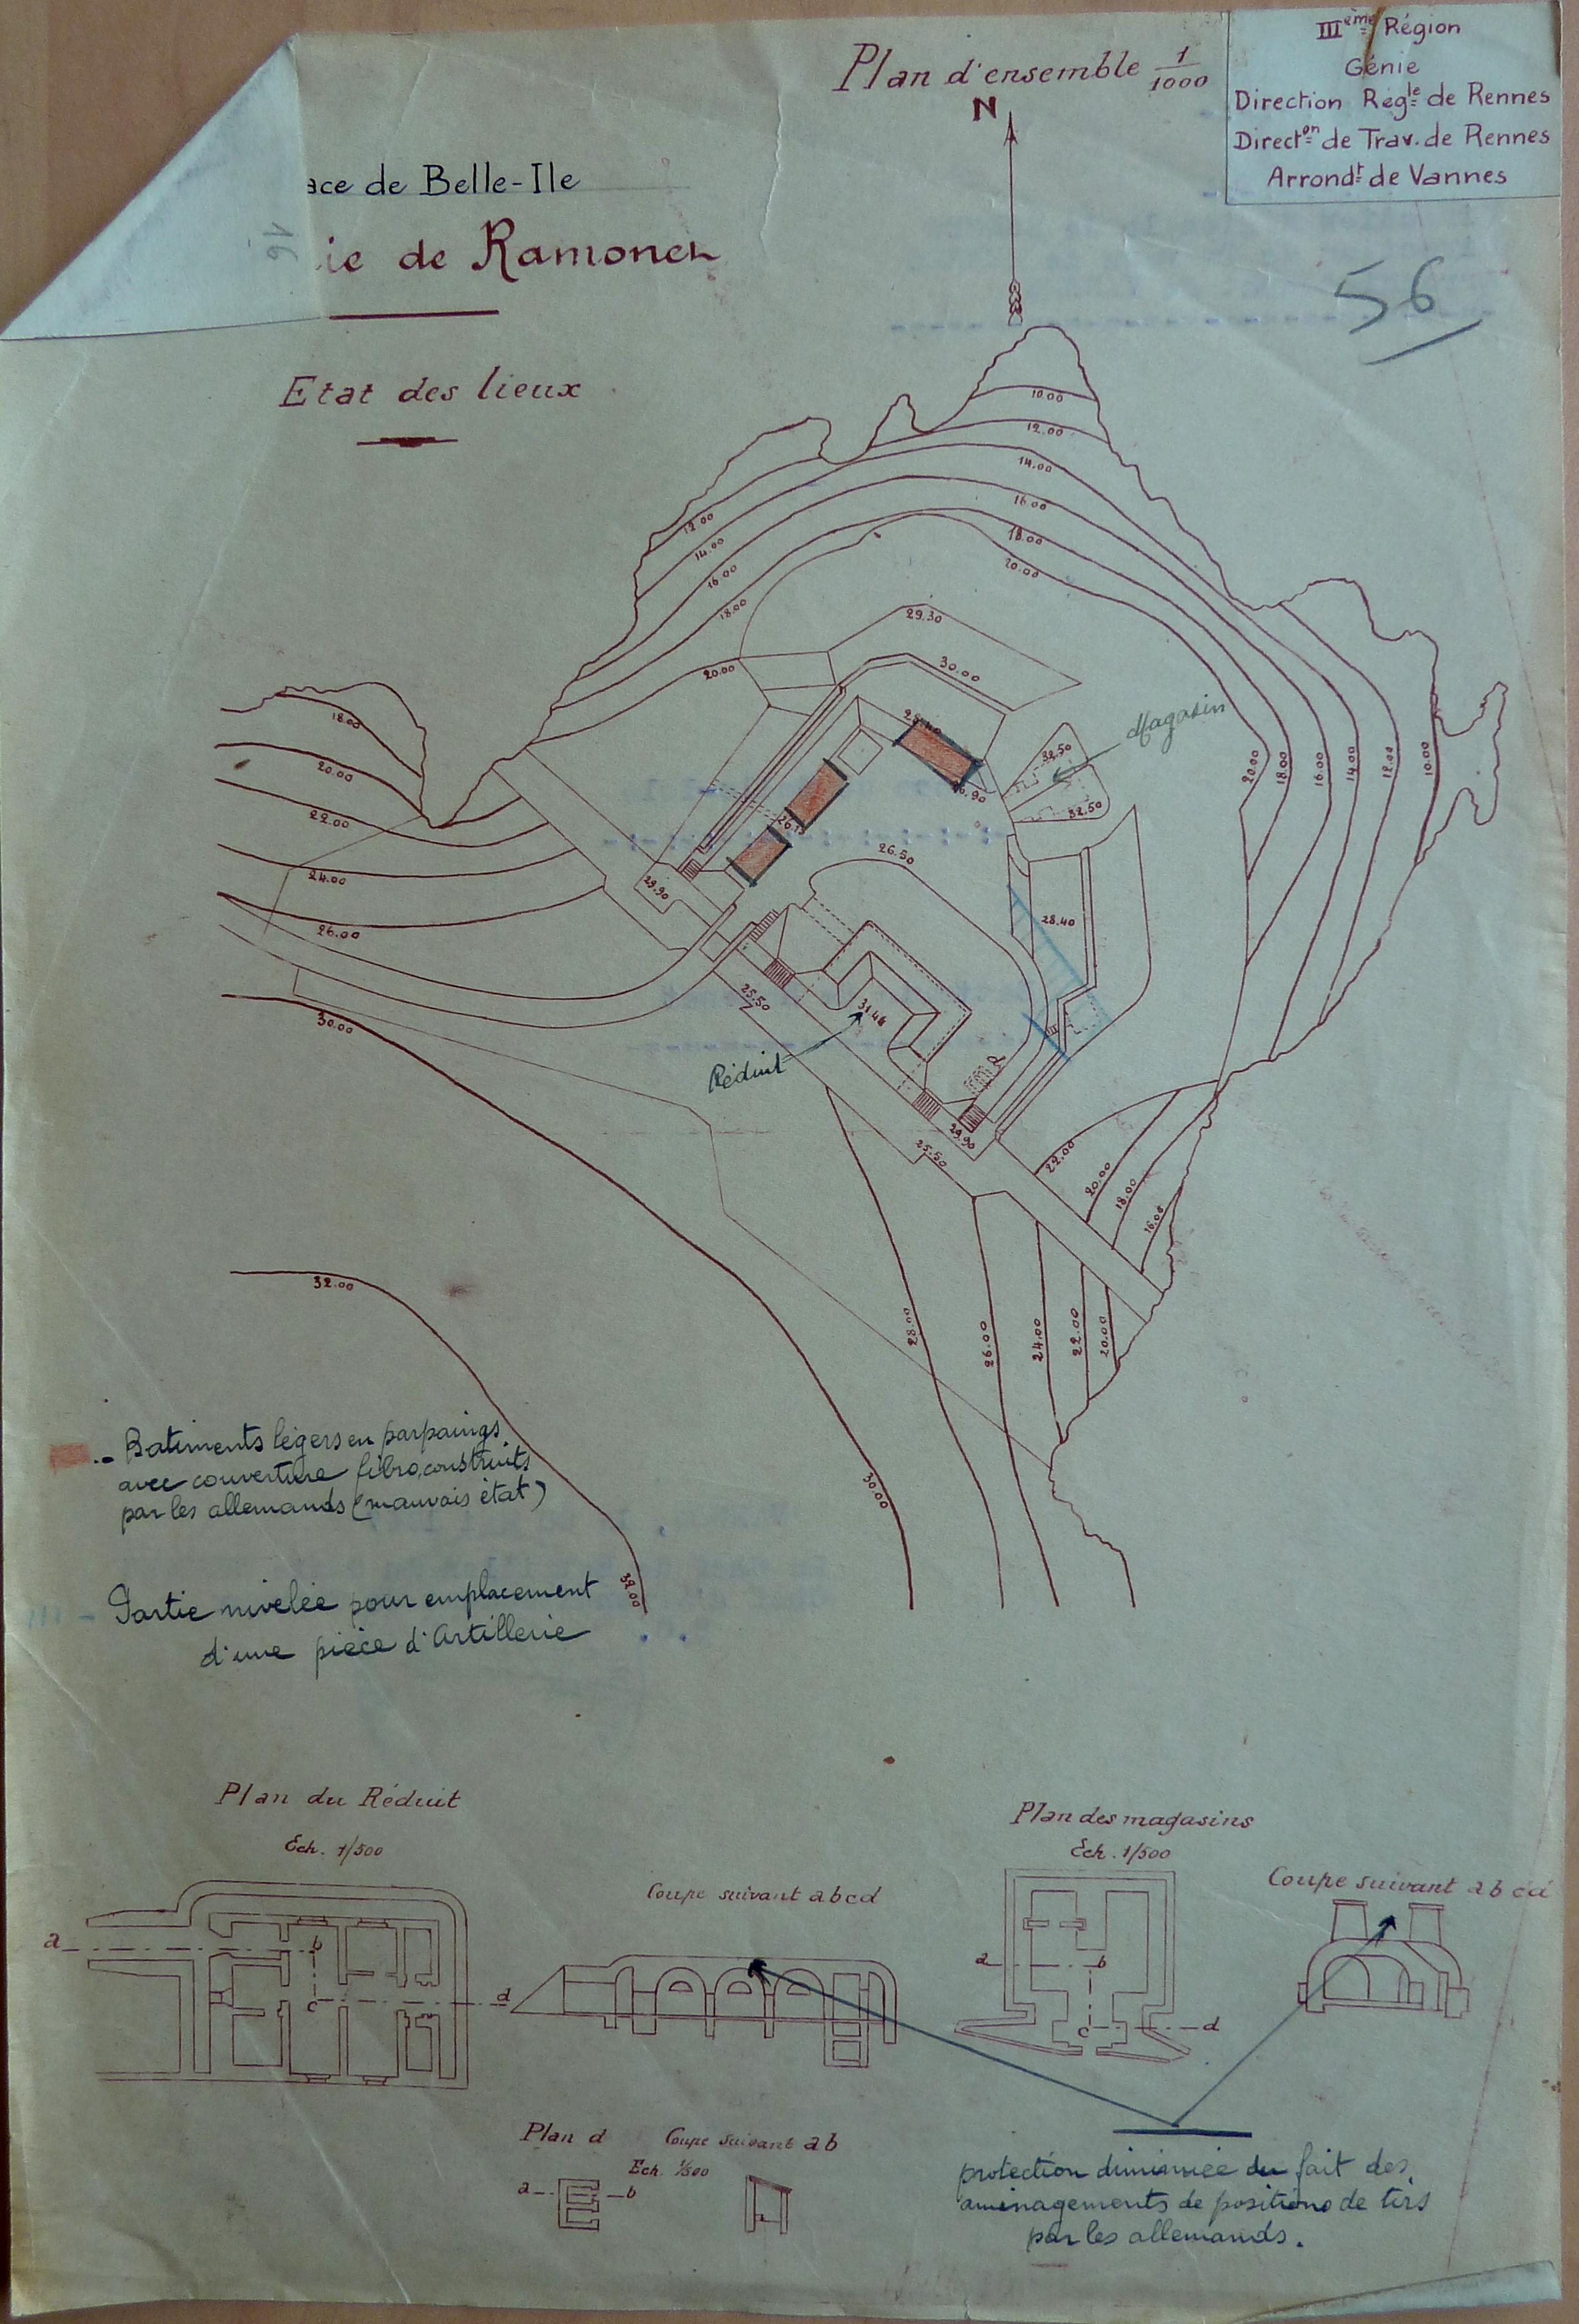 Plan d'ensemble 1/1000
IIIème Région
Génie
Direction Régle de Rennes
Directon de Trav. de Rennes
Arrondt de Vannes
N
ace de Belle-Ile
ie de Ramonet
16
56
Etat des lieux
10.00
12.00
14.00
16.00
18.00
20.00
12.00
14.00
16.00
18.00
20.00
29.30
30.00
Magasin
32.50
32.50
26.90
26.50
28.40
29.90
25.50
31.46
Réduit
25.50
18.00
20.00
22.00
24.00
26.00
30.00
20.00
18.00
16.00
14.00
12.00
10.00
22.00
20.00
18.00
16.00
28.00
26.00
24.00
22.00
20.00
32.00
30.00
32.00
Batiments légers en parpaings
avec couverture fibro, construits
par les allemands (mauvais état)
Partie nivelée pour emplacement
d'une pièce d'Artillerie
Plan du Réduit
Ech. 1/500
a
b
c
d
Coupe suivant abcd
Plan des magasins
Ech. 1/500
a
b
c
d
Coupe suivant abcd
Plan d
Coupe suivant ab
Ech. 1/500
a
b
protection diminuée du fait des
aménagements de positions de tirs
par les allemands.